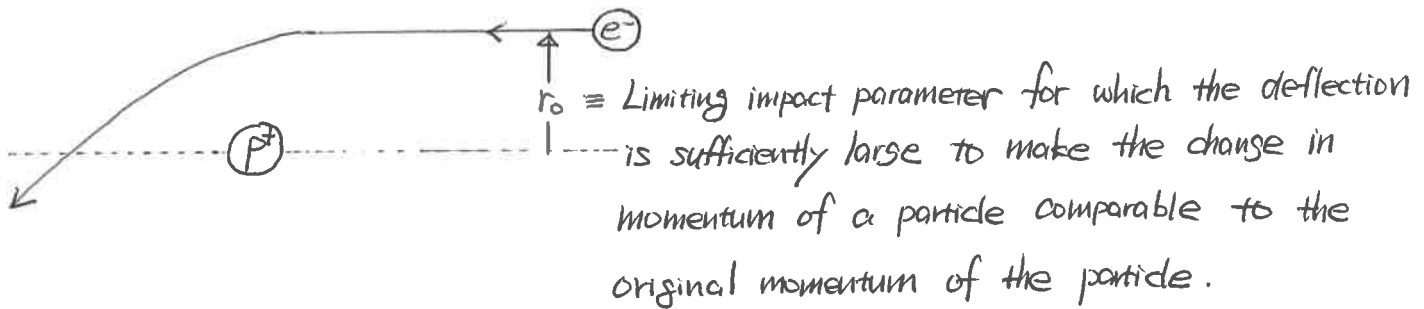 e⁻
r₀ ≡ Limiting impact parameter for which the deflection
P⁺
is sufficiently large to make the change in
momentum of a particle comparable to the
original momentum of the particle.